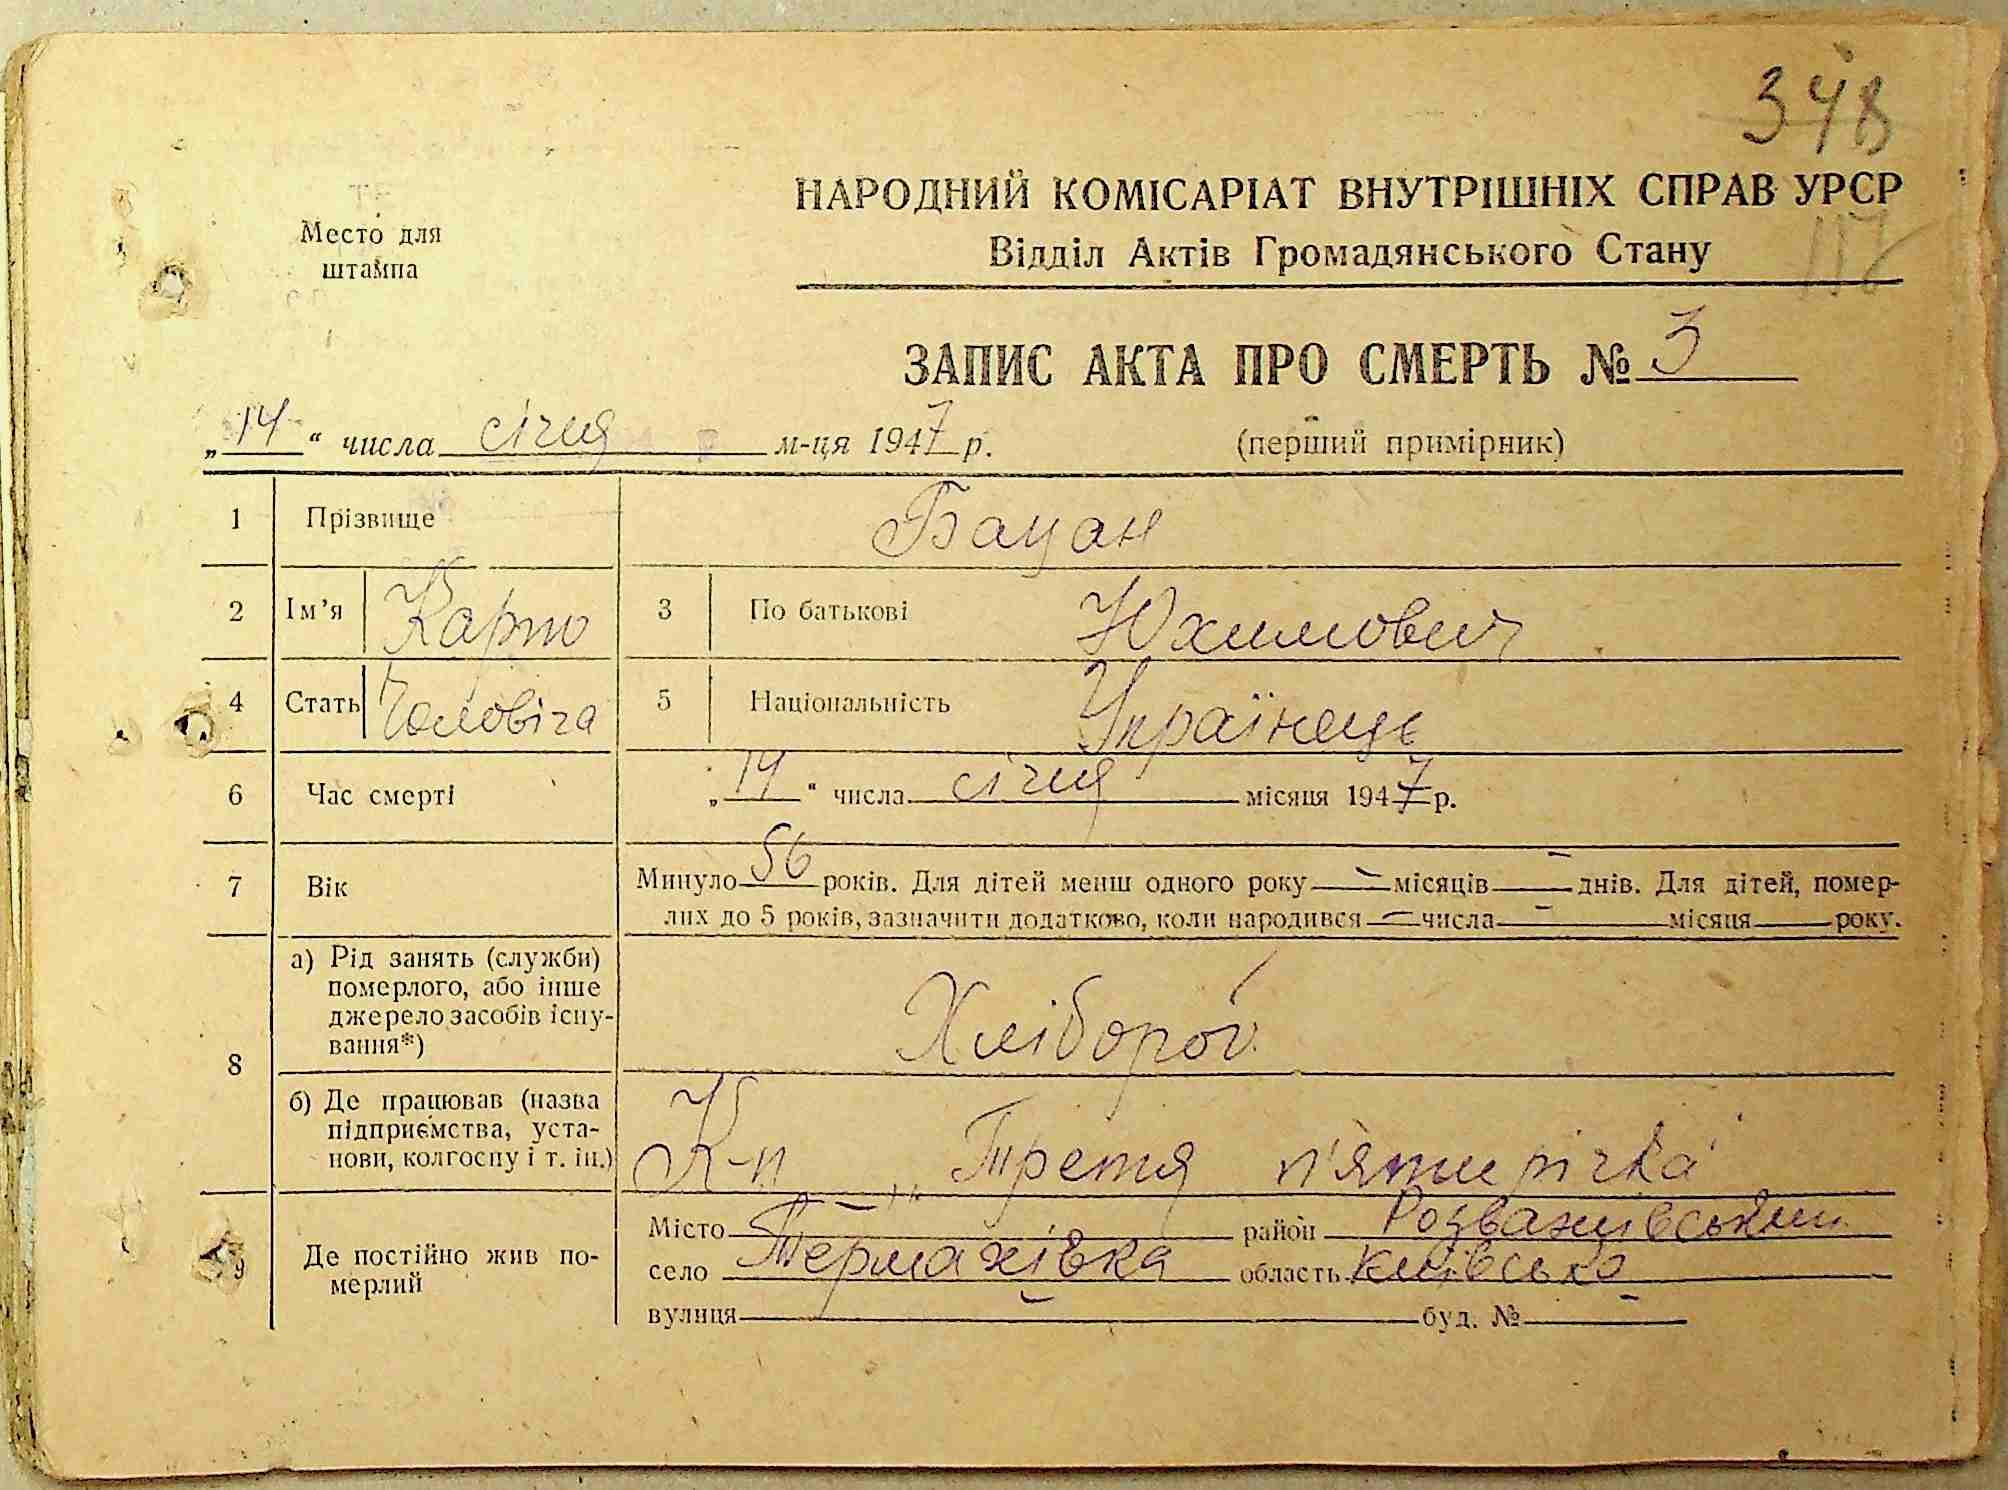 348
НАРОДНИЙ КОМІСАРІАТ ВНУТРІШНІХ СПРАВ УРСР
Место для
штампа
Відділ Актів Громадянського Стану
ЗАПИС АКТА ПРО СМЕРТЬ № 3
„14“ числа січня м-ця 1947 р.
(перший примірник)
1 Прізвище Бацан
2 Ім’я Карпо 3 По батькові Юхимович
4 Стать Чоловіча 5 Національність Українець
6 Час смерті „14“ числа січня місяця 1947 р.
7 Вік Минуло 56 років. Для дітей менш одного року — місяців — днів. Для дітей, помер-
лих до 5 років, зазначити додатково, коли народився — числа — місяця року.
8 а) Рід занять (служби)
померлого, або інше
джерело засобів існу-
вання*)
Хлібороб
б) Де працював (назва
підприємства, уста-
нови, колгоспу і т. ін.)
К-п „Третя п'ятирічка"
9 Де постійно жив по-
мерлий
Місто — район Розважівський
село Термахівка область Київська
вулиця — буд. № —